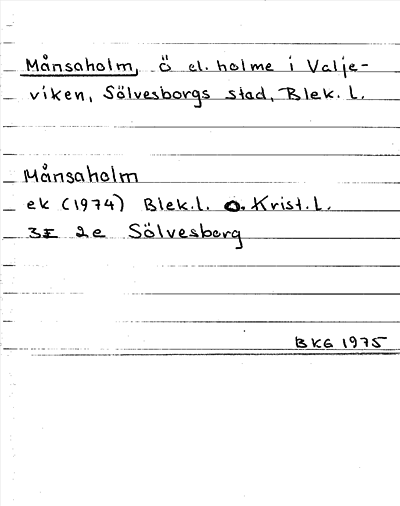 Månsaholm, Ö el. holme i Valje-
viken, Sölvesborgs stad, Blek. l.
Månsaholm
ek (1974) Blek.l. o. Krist.l.
3E 2e Sölvesborg
BKG 1975